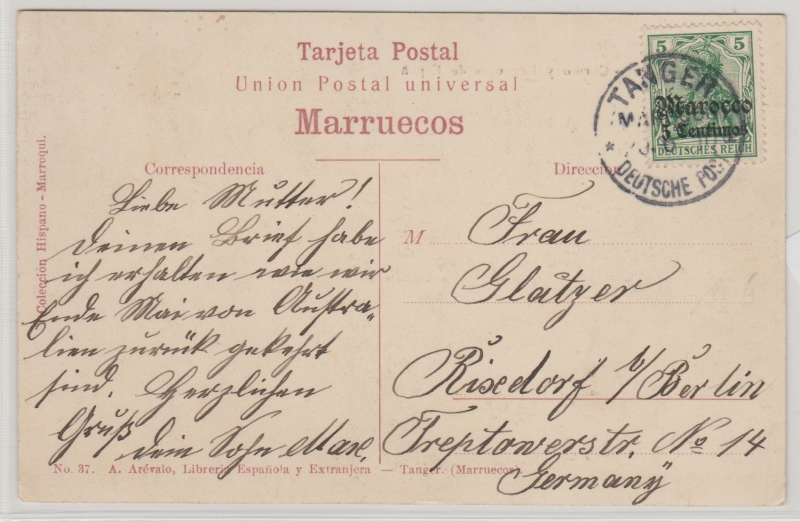 Tarjeta Postal
Union Postal universal
Marruecos
5 5
Marocco
5 Centimos
DEUTSCHES REICH
TANGER
DEUTSCHE POST
Correspondencia
Direccion
Liebe Mutter!
Deinen Brief habe
ich erhalten wie wir
Ende Mai von Austra-
lien zurück gekehrt
sind. Herzlichen
Gruß
Dein Sohn Max.
M Frau
Glatzer
Rixdorf b/Berlin
Treptowerstr. No 14
Germany
Colección Hispano - Marroqui.
No. 37. A. Arévalo, Libreria Española y Extranjera — Tanger. (Marruecos)